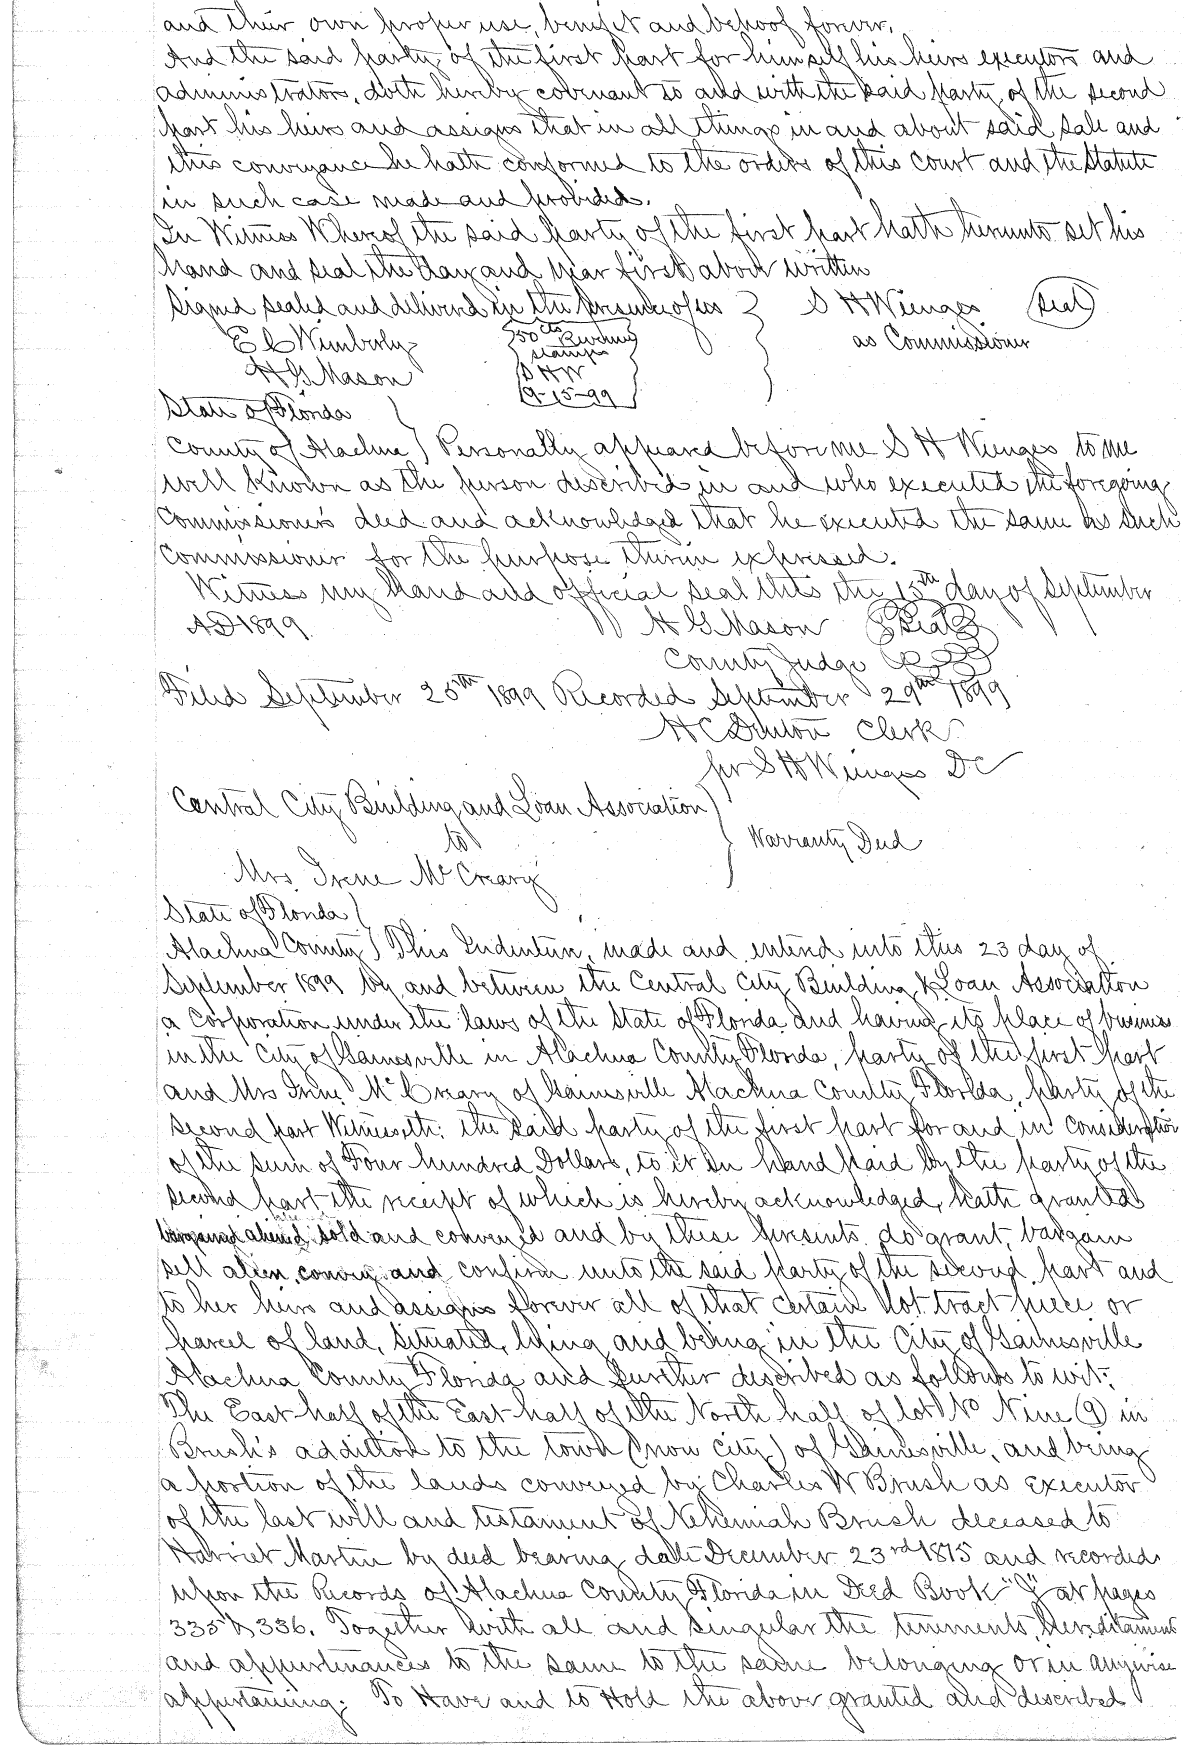 and their own proper use, benefit and behoof forever.
And the said party of the first part for himself his heirs executors and
administrators, doth hereby covenant to and with the said party of the second
part his heirs and assigns that in all things in and about said sale and
this conveyance he hath conformed to the orders of this Court and the Statute
in such case made and provided.
In Witness Whereof the said party of the first part hath hereunto set his
hand and seal the day and year first above written
Signed sealed and delivered in the presence of us } S H Wienges (Seal)
E C Wimberly
50 cts Revenue
as Commissioner
stamps
H G Mason
S H W
9-15-99
State of Florida
County of Alachua } Personally appeared before me S H Wienges to me
well known as the person described in and who executed the foregoing
Commissioner's deed and acknowledged that he executed the same as such
Commissioner for the purpose therein expressed.
Witness my hand and official seal this the 15th day of September
AD 1899.
H G Mason Seal
County Judge
Filed September 25th 1899 Recorded September 29th 1899
H C Denton Clerk
per S H Wienges DC
Central City Building and Loan Association
to } Warranty Deed
Mrs. Irene McCreary
State of Florida
Alachua County } This Indenture, made and entered into this 23 day of
September 1899 by and between the Central City Building & Loan Association
a Corporation under the laws of the State of Florida and having its place of business
in the City of Gainesville in Alachua County Florida, party of the first part
and Mrs Irene McCreary of Gainesville Alachua County Florida, party of the
second part Witnesseth: the said party of the first part for and in consideration
of the sum of Four hundred Dollars, to it in hand paid by the party of the
second part the receipt of which is hereby acknowledged, hath granted
bargained aliened sold and conveyed and by these presents do grant, bargain
sell alien, convey and confirm unto the said party of the second part and
to her heirs and assigns forever all of that certain lot tract piece or
parcel of land, situated, lying and being in the City of Gainesville
Alachua County Florida and further described as follows to wit:
The East half of the East half of the North half of lot No Nine (9) in
Brush's addition to the town (now city) of Gainesville, and being
a portion of the lands conveyed by Charles W Brush as executor
of the last will and testament of Nehemiah Brush deceased to
Harriet Martin by deed bearing date December 23rd 1875 and recorded
upon the Records of Alachua County Florida in Deed Book at pages
335 & 336. Together with all and singular the tenements, hereditaments
and appurtenances to the same to the same belonging or in anywise
appertaining. To Have and to Hold the above granted and described